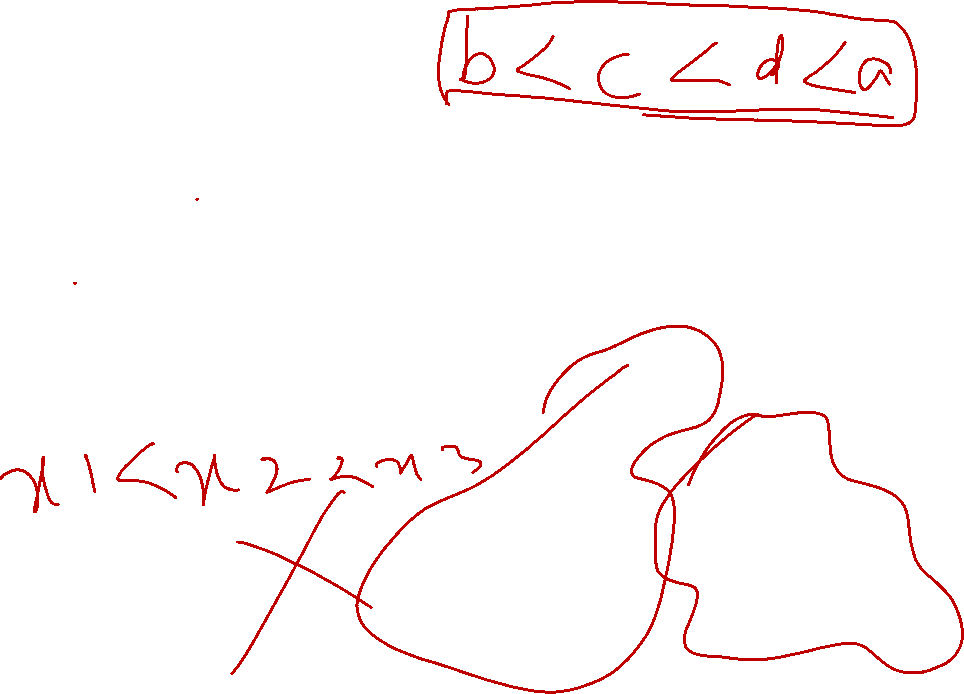 b < c < d < a
x1 < x2 < x3